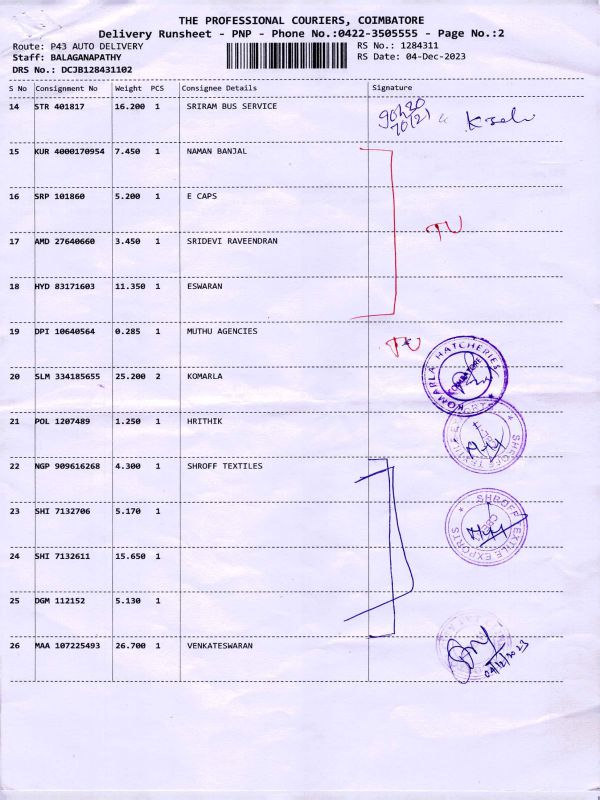 THE PROFESSIONAL COURIERS, COIMBATORE
Delivery Runsheet - PNP - Phone No.:0422-3505555 - Page No.:2
Route: P43 AUTO DELIVERY
RS No.: 1284311
Staff: BALAGANAPATHY
RS Date: 04-Dec-2023
DRS No.: DCJB128431102
S No Consignment No Weight PCS Consignee Details Signature
14 STR 401817 16.200 1 SRIRAM BUS SERVICE
15 KUR 4000170954 7.450 1 NAMAN BANJAL
16 SRP 101860 5.200 1 E CAPS
17 AMD 27640660 3.450 1 SRIDEVI RAVEENDRAN
TU
18 HYD 83171603 11.350 1 ESWARAN
19 DPI 10640564 0.285 1 MUTHU AGENCIES
TU
KOMARLA HATCHERIES
COIMBATORE
20 SLM 334185655 25.200 2 KOMARLA
21 POL 1207489 1.250 1 HRITHIK
SHROFF TEXTILE EXPORTS
CBE
22 NGP 909616268 4.300 1 SHROFF TEXTILES
23 SHI 7132706 5.170 1
SHROFF TEXTILE EXPORTS
CBE
24 SHI 7132611 15.650 1
25 DGM 112152 5.130 1
26 MAA 107225493 26.700 1 VENKATESWARAN
04/12/2023